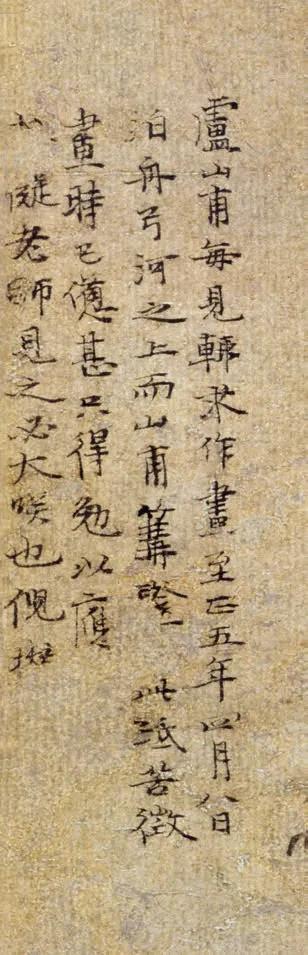 盧山甫每見輒求作畫至正五年四月八日
泊舟弓河之上而山甫篝燈 此紙苦徵
畫時已憊甚只得勉以應
之 癡老師見之必大咲也倪瓚